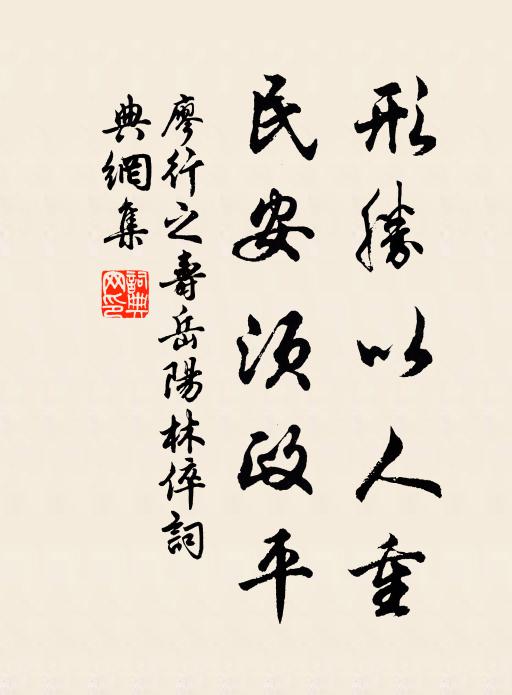 形勝以人重
民安須政平
廖行之壽岳陽林倅詞
典網集
詞典網印